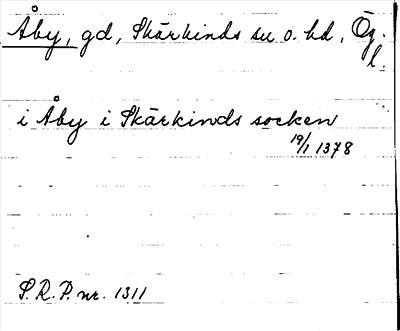 Åby, gd, Skärkinds sn o. hd, Ög. l.
i Åby i Skärkinds socken
19/1 1378
S.R.P. nr. 1311